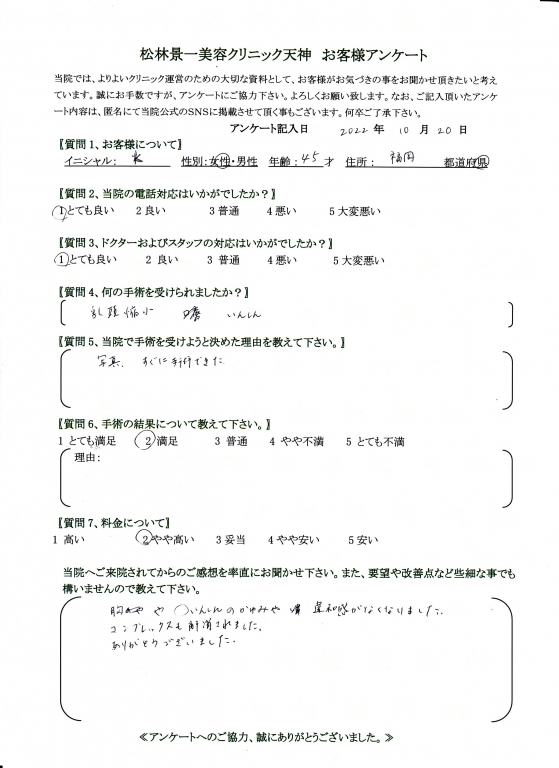 松林景一美容クリニック天神　お客様アンケート
当院では、よりよいクリニック運営のための大切な資料として、お客様がお気づきの事をお聞かせ頂きたいと考え
ています。誠にお手数ですが、アンケートにご協力下さい。よろしくお願い致します。なお、ご記入頂いたアンケ
ート内容は、匿名にて当院公式のSNSに掲載させて頂く事もございます。何卒ご了承下さい。
アンケート記入日　2022 年 10 月 20 日
【質問1、お客様について】
イニシャル：　性別：女性・男性　年齢：45 才　住所：福岡　都道府県
【質問2、当院の電話対応はいかがでしたか？】
1 とても良い　2 良い　3 普通　4 悪い　5 大変悪い
【質問3、ドクターおよびスタッフの対応はいかがでしたか？】
1 とても良い　2 良い　3 普通　4 悪い　5 大変悪い
【質問4、何の手術を受けられましたか？】
乳頭縮小　いんしん
【質問5、当院で手術を受けようと決めた理由を教えて下さい。】
写真、すぐに手術できた
【質問6、手術の結果について教えて下さい。】
1 とても満足　2 満足　3 普通　4 やや不満　5 とても不満
理由：
【質問7、料金について】
1 高い　2 やや高い　3 妥当　4 やや安い　5 安い
当院へご来院されてからのご感想を率直にお聞かせ下さい。また、要望や改善点など些細な事でも
構いませんので教えて下さい。
胸や いんしんのかゆみや 違和感がなくなりました。
コンプレックスも解消されました。
ありがとうございました。
≪アンケートへのご協力、誠にありがとうございました。≫